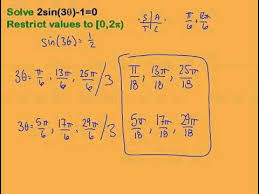 Solve 2sin(3θ)-1=0
Restrict values to [0,2π)
sin(3θ) = 1/2
S | A
T | C
π/6, 13π/6
3θ = π/6, 13π/6, 25π/6 /3
π/18, 13π/18, 25π/18
3θ = 5π/6, 17π/6, 29π/6 /3
5π/18, 17π/18, 29π/18